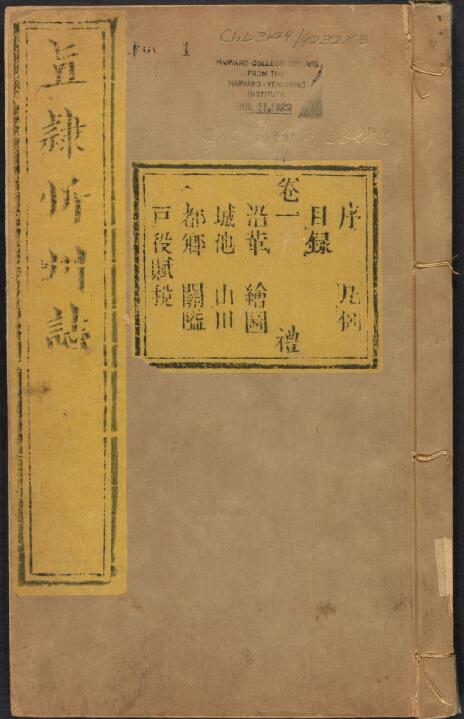 ChL3129/923283
HARVARD COLLEGE LIBRARY
FROM THE
HARVARD-YENCHING
INSTITUTE
JUL 11 1929
直隷忻州誌
序 凡例
目録
卷一 禮
沿革 繪圖
城池 山川
都鄉 關隘
戸役賦稅